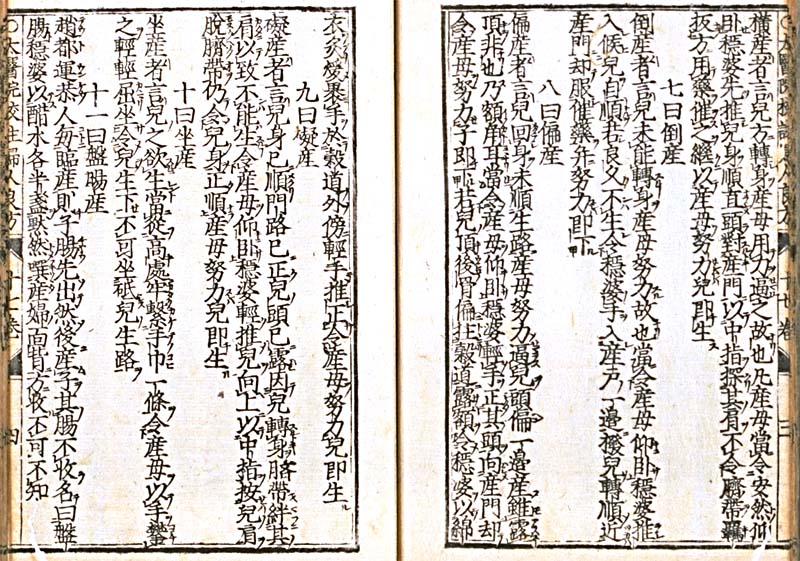 橫産者言兒方轉身産母用力逼之故也凡産母當令安然仰
臥穩婆先推兒身順直頭對産門以中指探其肩不令臍帶羈
扳方用藥催之繼以産母努力兒即生
七曰倒産
倒産者言兒未能轉身産母努力故也當令産母仰臥穩婆推
入候兒自順若良久不生令穩婆手入産戸一邊撥兒轉順近
産門却服催藥并努力即下
八曰偏産
偏産者言兒回身未順生路産母努力逼兒頭偏一邊産雖露
頂非也乃額角耳當令産母仰臥穩婆輕手正其頭向産門却
令産母努力子即下若兒頂後骨偏拄穀道露額令穩婆以綿
衣炙煖裹手於穀道外傍輕手推正令産母努力兒即生
九曰礙産
礙産者言兒身已順門路已正兒頭已露因兒轉身臍帶絆其
肩以致不能生令産母仰臥穩婆輕推兒向上以中指按兒肩
脫臍帶仍令兒身正順産母努力兒即生
十曰坐産
坐産者言兒之欲生當從高處牢繫手巾一條令産母以手攀
之輕輕屈坐令兒生下不可坐砥兒生路
十一曰盤腸産
趙都運恭人每臨産則子腸先出然後産子其腸不收名曰盤
腸穩婆以醋水各半盞默然噀産婦面背方收不可不知